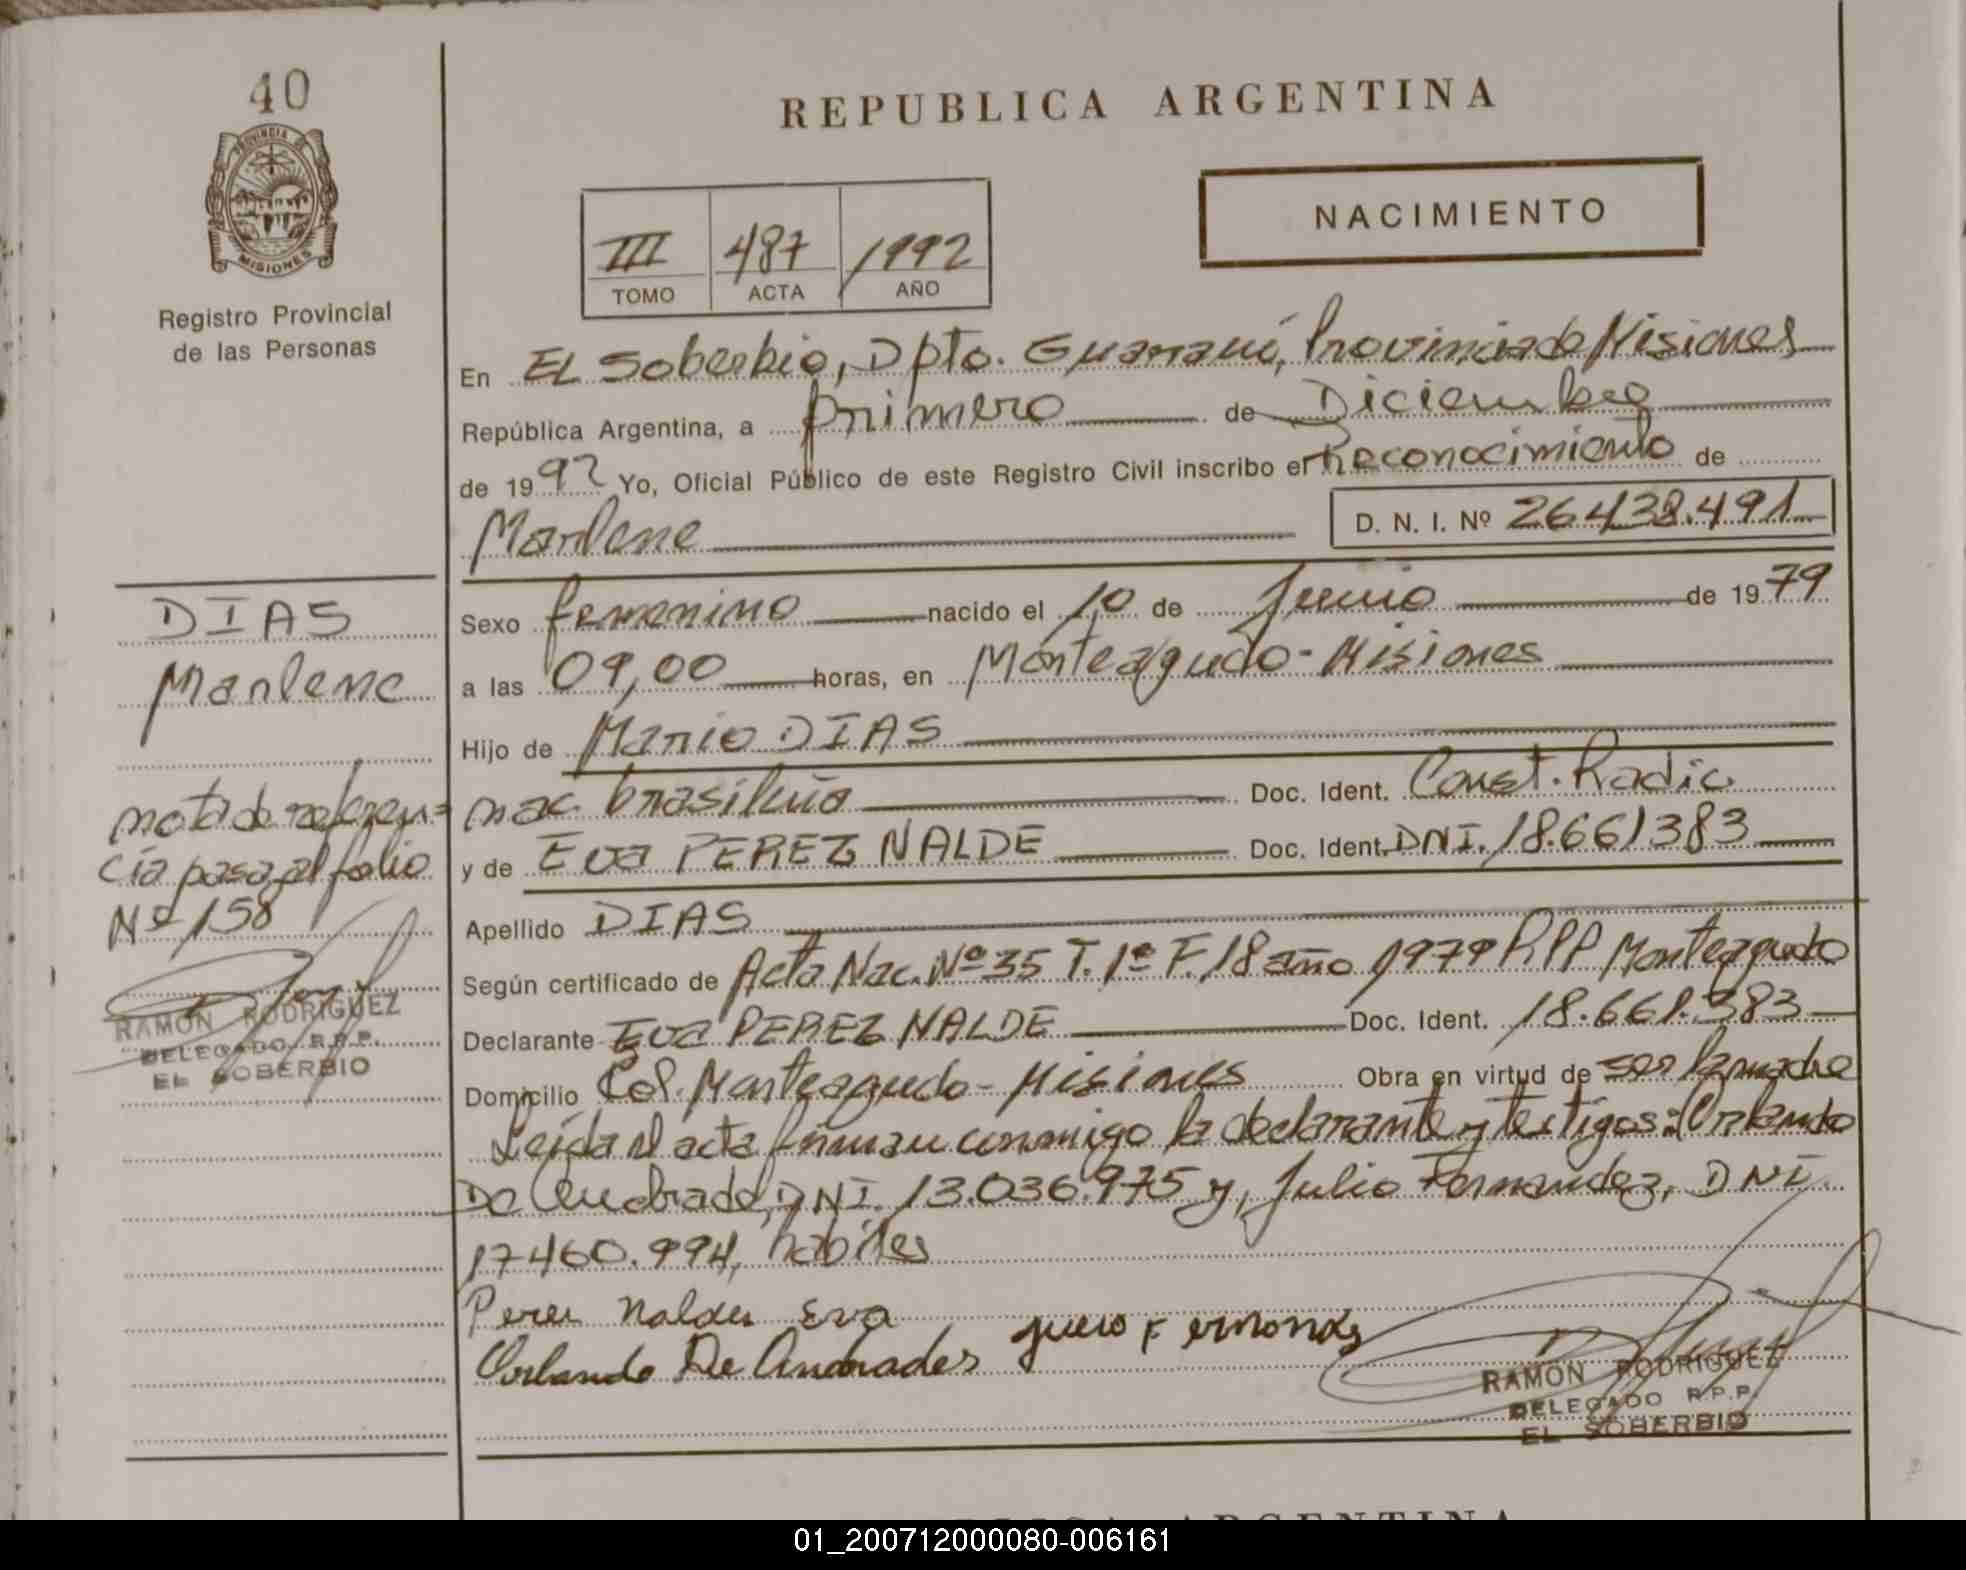 40
PROVINCIA DE
MISIONES
Registro Provincial
de las Personas
REPUBLICA ARGENTINA
NACIMIENTO
III 487 1992
TOMO ACTA AÑO
En EL Soberbio, Dpto. Guaraní, Provincia de Misiones
República Argentina, a primero de Diciembre
de 1992 Yo, Oficial Público de este Registro Civil inscribo el Reconocimiento de
Marlene D. N. I. Nº 26.438.491
DIAS
Marlene
Sexo femenino nacido el 10 de Junio de 1979
a las 09,00 horas, en Monteagudo - Misiones
Hijo de Mario DIAS
nac. brasileña Doc. Ident. Const. Radic
y de Eva PEREZ NALDE Doc. Ident. DNI. 18.661383
nota de referen=
cia pasa al folio
Nº 158
RAMON RODRIGUEZ
DELEGADO R.P.P.
EL SOBERBIO
Apellido DIAS
Según certificado de Acta Nac. Nº 35 T. 1º F. 18 año 1979 R.P.P Monteagudo
Declarante Eva PEREZ NALDE Doc. Ident. 18.661.383
Domicilio Col. Monteagudo - Misiones Obra en virtud de ser la madre
Leída el acta firman conmigo la declarante y testigos: Orlando
De Andrade, DNI. 13.036.975 y, Julio Fernandez, DNI.
17460.994, habiles
Perez Naldes Eva
Julio Fernandez
Orlando De Andrades
RAMON RODRIGUEZ
DELEGADO R.P.P.
EL SOBERBIO
REPUBLICA ARGENTINA
01_200712000080-006161